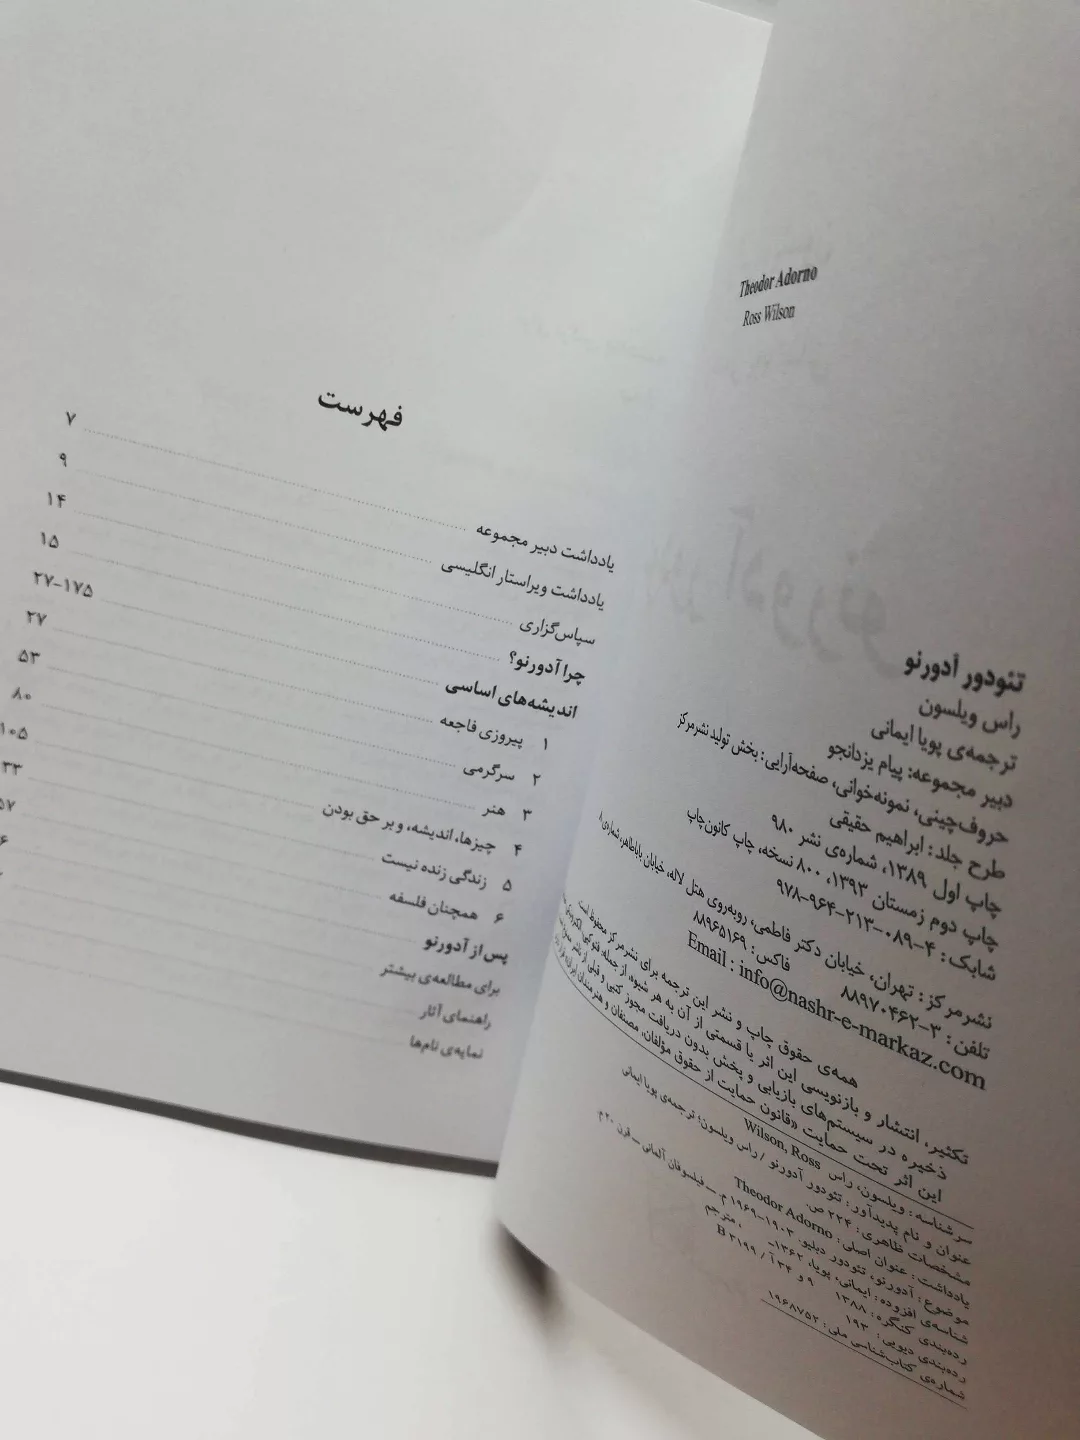 Theodor Adorno
Ross Wilson
تئودور آدورنو
راس ویلسون
ترجمه‌ی پویا ایمانی
دبیر مجموعه: پیام یزدانجو
حروف‌چینی، نمونه‌خوانی، صفحه‌آرایی: بخش تولید نشرمرکز
طرح جلد: ابراهیم حقیقی
چاپ اول ۱۳۸۹، شماره‌ی نشر ۹۸۰
چاپ دوم زمستان ۱۳۹۳، ۸۰۰ نسخه، چاپ کانون‌چاپ
شابک: ۴-۰۸۹-۲۱۳-۹۶۴-۹۷۸
نشرمرکز: تهران، خیابان دکتر فاطمی، روبه‌روی هتل لاله، خیابان باباطاهر، شماره‌ی ۸
تلفن: ۳-۸۸۹۷۰۴۶۲ فاکس: ۸۸۹۶۵۱۶۹
Email: info@nashr-e-markaz.com
همه‌ی حقوق چاپ و نشر این ترجمه برای نشرمرکز محفوظ است
تکثیر، انتشار و بازنویسی این اثر یا قسمتی از آن به هر شیوه، از جمله: فتوکپی، الکترونیکی
ذخیره در سیستم‌های بازیابی و پخش بدون دریافت مجوز کتبی و قبلی از ناشر
این اثر تحت حمایت «قانون حمایت از حقوق مؤلفان، مصنفان و هنرمندان ایران»
سرشناسه: ویلسون، راس Wilson, Ross
عنوان و نام پدیدآور: تئودور آدورنو / راس ویلسون؛ ترجمه‌ی پویا ایمانی
مشخصات ظاهری: ۲۲۴ ص.
یادداشت: عنوان اصلی: Theodor Adorno
موضوع: آدورنو، تئودور دبلیو. ۱۹۰۳-۱۹۶۹ م. — فیلسوفان آلمانی — قرن ۲۰ م.
شناسه‌ی افزوده: ایمانی، پویا، ۱۳۶۲-، مترجم
رده‌بندی کنگره: ۱۳۸۸ ۹ و ۳۴ آ / B ۳۱۹۹
رده‌بندی دیویی: ۱۹۳
شماره‌ی کتاب‌شناسی ملی: ۱۹۶۸۷۵۲
فهرست
یادداشت دبیر مجموعه ۷
یادداشت ویراستار انگلیسی ۹
سپاس‌گزاری ۱۴
چرا آدورنو؟ ۱۵
اندیشه‌های اساسی ۲۷-۱۷۵
۱ پیروزی فاجعه ۲۷
۲ سرگرمی ۵۳
۳ هنر ۸۰
۴ چیزها، اندیشه، و بر حق بودن ۱۰۵
۵ زندگی زنده نیست ۳۳
۶ همچنان فلسفه ۵۷
پس از آدورنو
برای مطالعه‌ی بیشتر
راهنمای آثار
نمایه‌ی نام‌ها